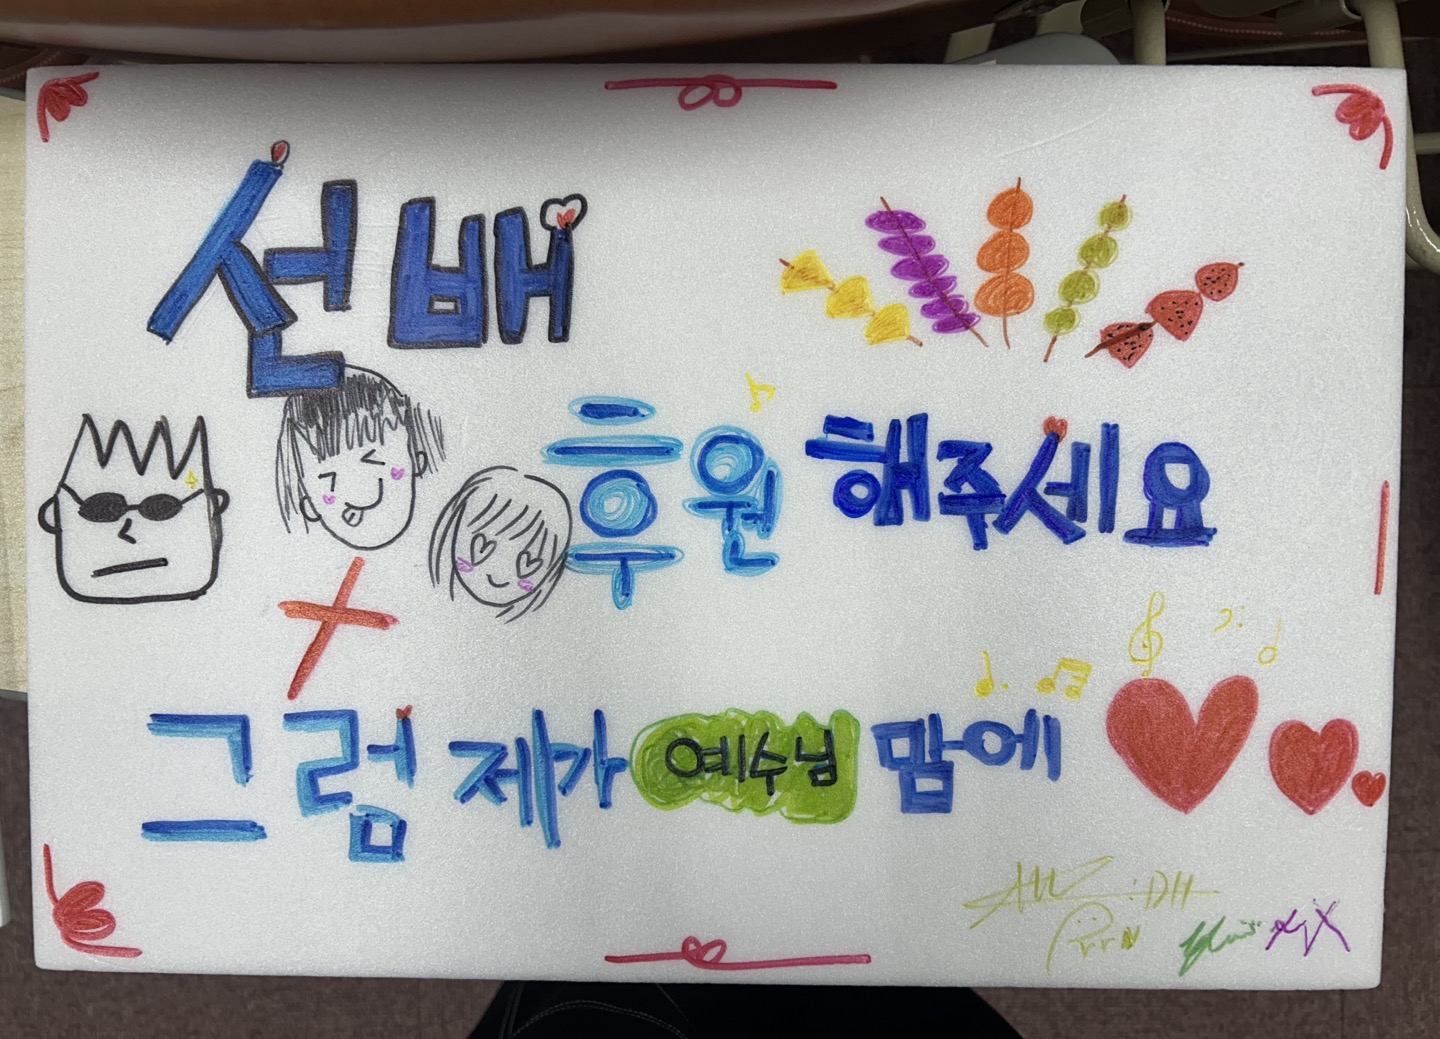 선배
후원 해주세요
그럼 제가 예수님 맘에